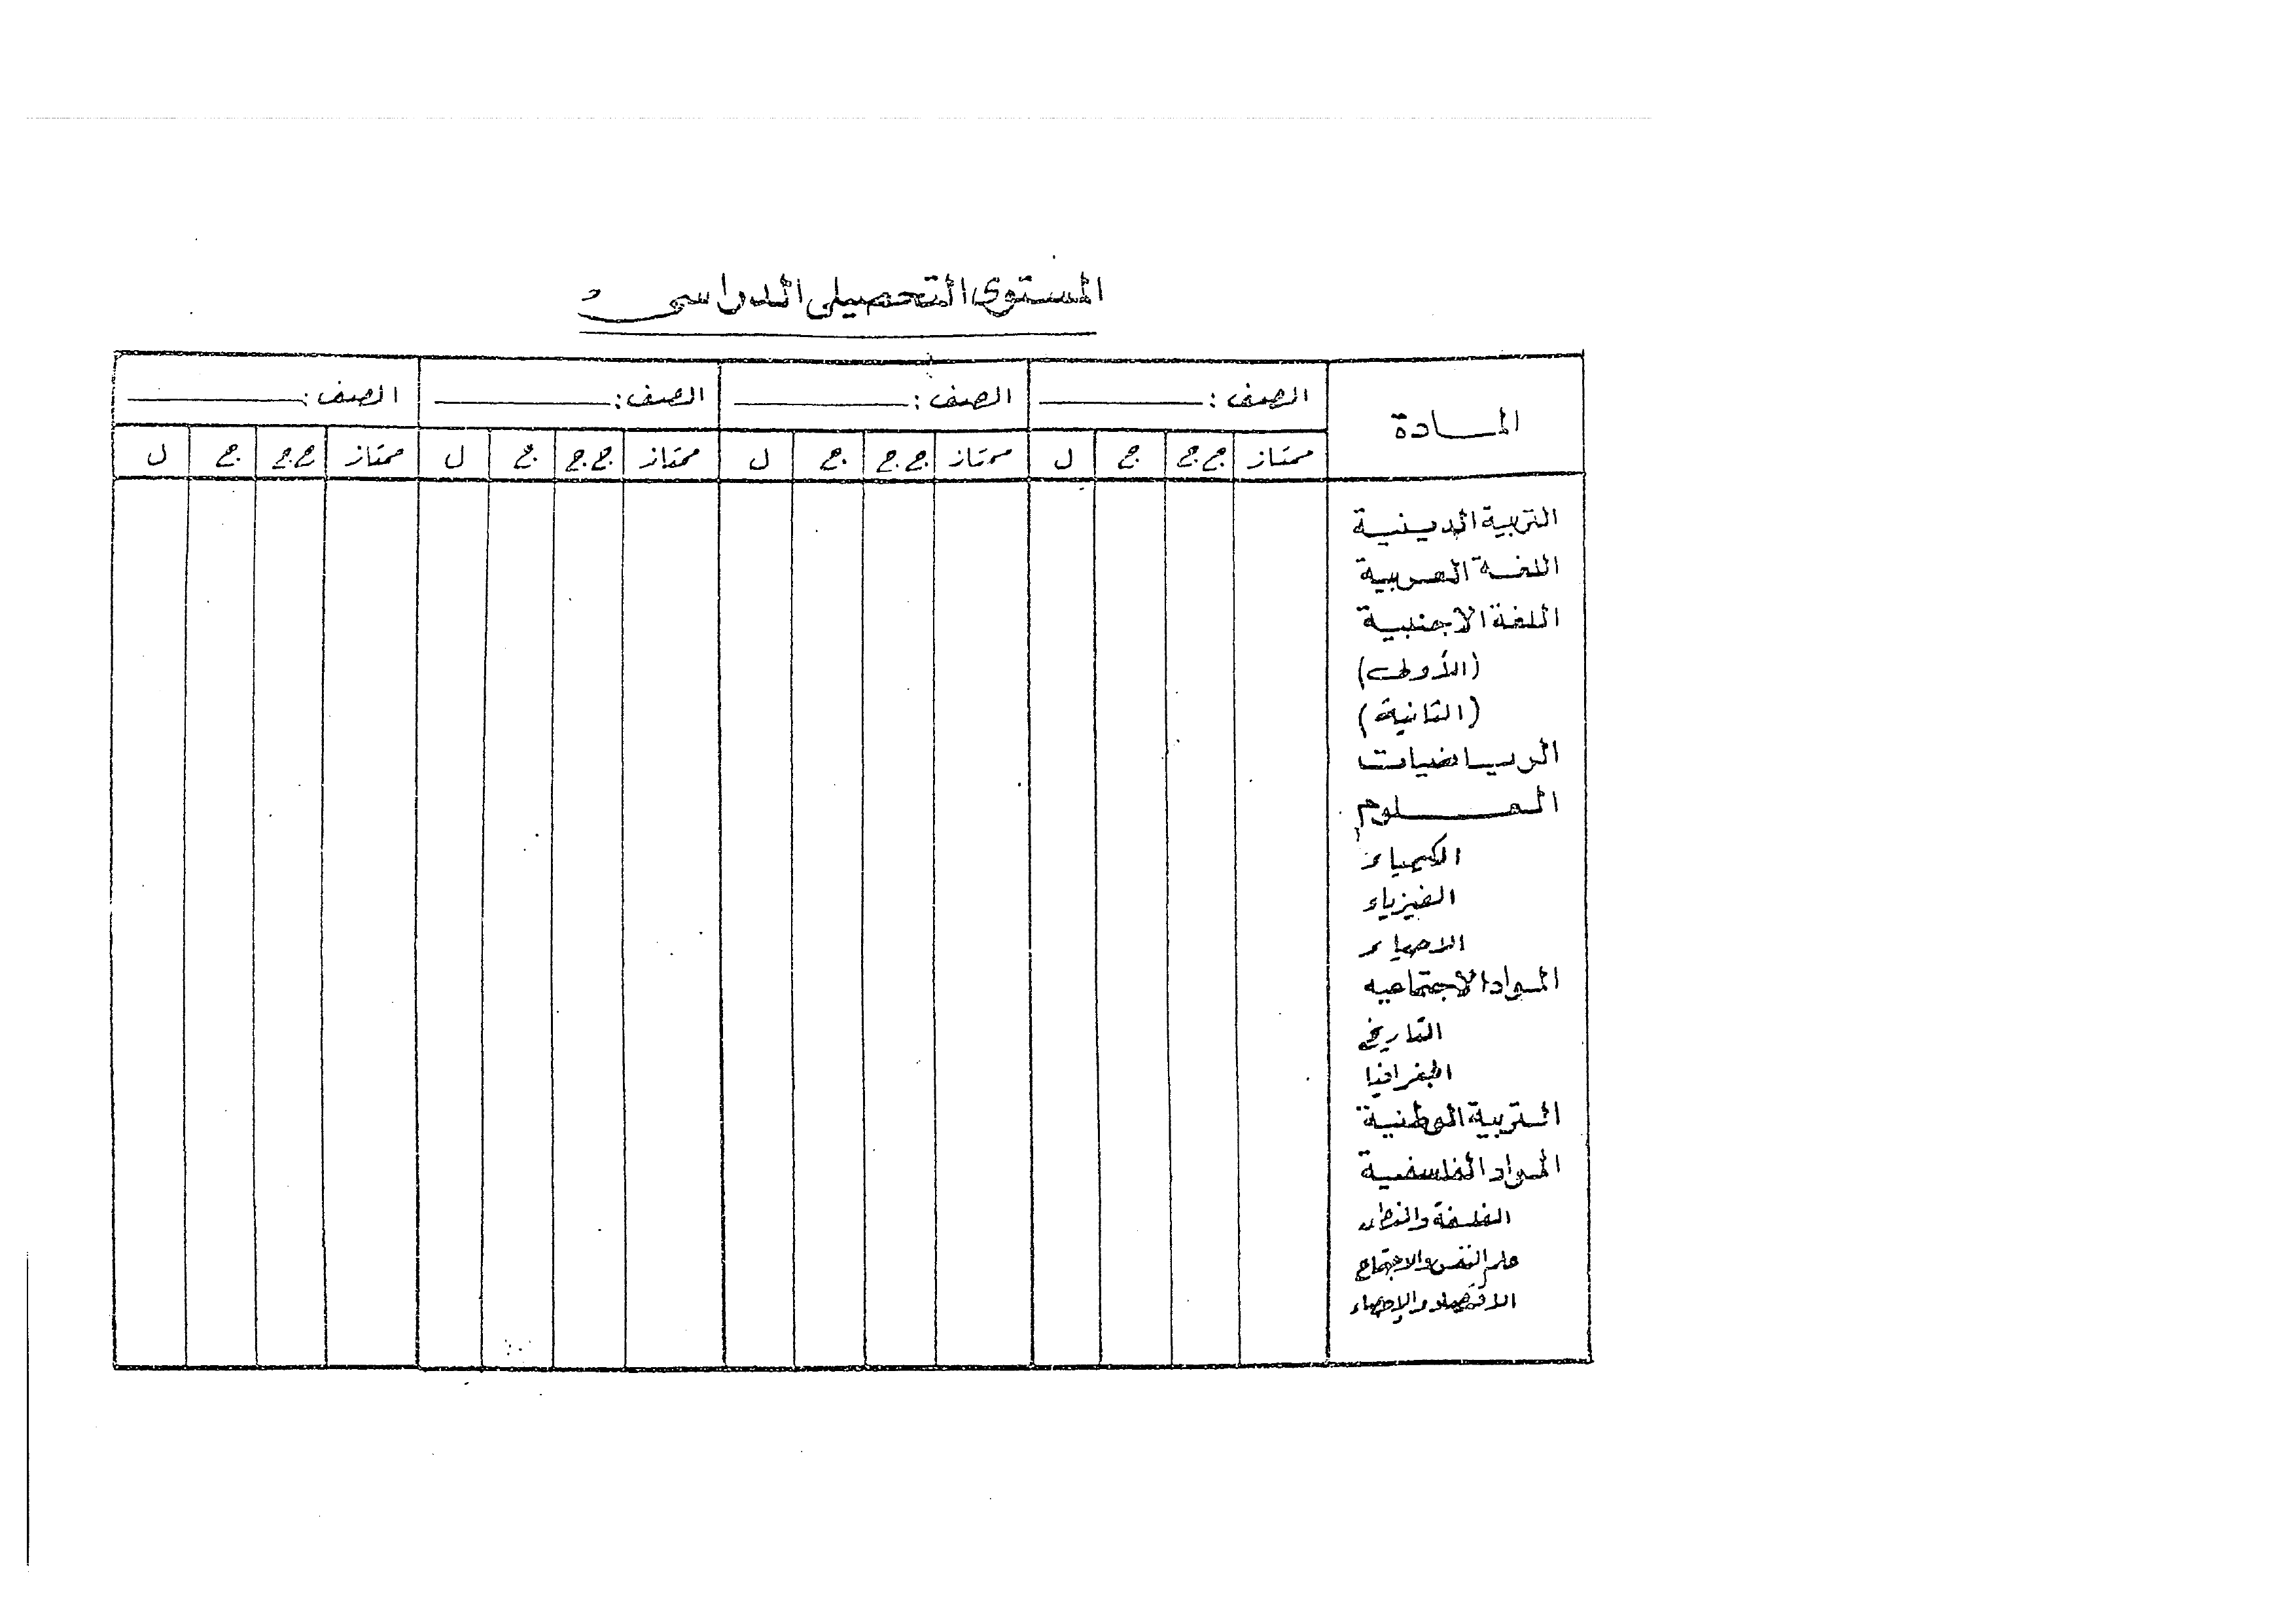 المستوى التحصيلى الدراسى
المادة الصف : الصف : الصف : الصف :
ممتاز ج.ج ج ل ممتاز ج.ج ج ل ممتاز ج.ج ج ل ممتاز ج.ج ج ل
التربية الدينية
اللغة العربية
اللغة الاجنبية
(الأولى)
(الثانية)
الرياضيات
العلوم
الكيمياء
الفيزياء
الاحياء
المواد الاجتماعيه
التاريخ
الجغرافيا
التربية الوطنية
المواد الفلسفية
الفلسفة
علم النفس والاجتماع
الاقتصاد والإحصاء